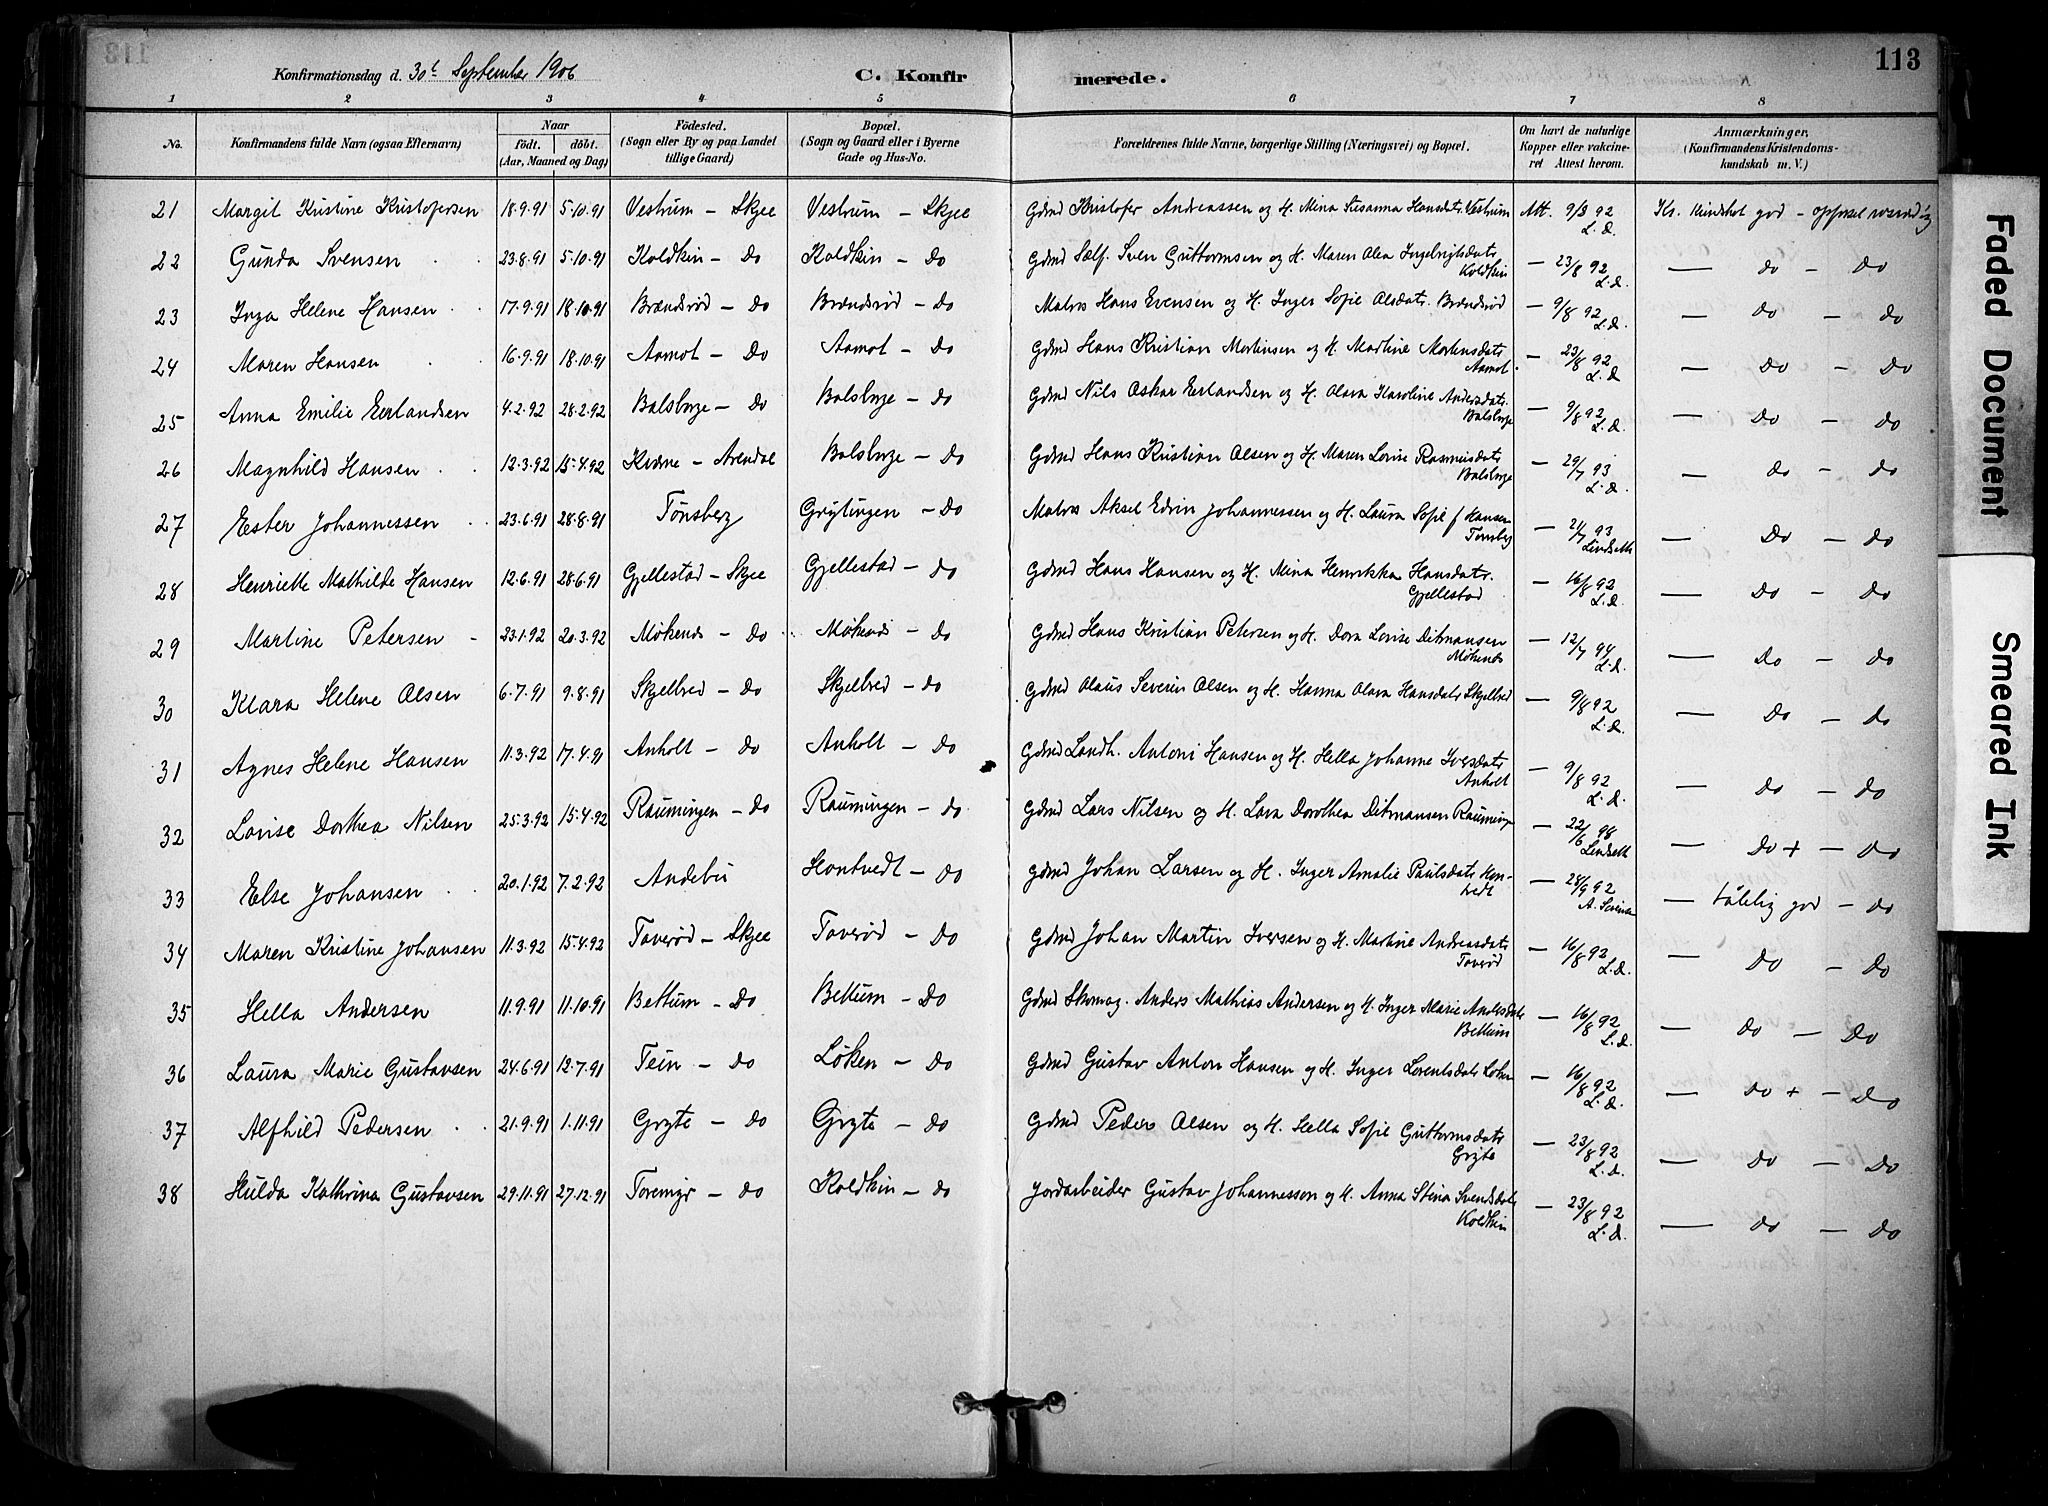 113
Konfirmationsdag d. 30te September 1906 C. Konfirmerede.
1 2 3 4 5 6 7 8
No. Konfirmandens fulde Navn (ogsaa Efternavn) Naar født. døbt. (Aar, Maaned og Dag) Fødested. (Sogn eller By og paa Landet tillige Gaard) Bopæl. (Sogn og Gaard eller i Byerne Gade og Hus-No. Forældrenes fulde Navne, borgerlige Stilling (Næringsvei) og Bopæl. Om havt de naturlige Kopper eller vakcineret Attest herom. Anmærkninger. (Konfirmandens Kristendomskundskab m. V.)
21 Margit Kristine Kristofersen 18.9.91 5.10.91 Vestrum – Skjee Vestrum – Skjee Gdmd Kristofer Andreassen og H. Mina Susanna Hansdatr. Vestrum Att. 9/8 92 L.d. Kr. Kundskab god – opførsel
22 Gunda Svensen 23.8.91 5.10.91 Koldkin – Do Koldkin – Do Gdmd Sælf. Sven Guttormsen og H. Maren Alea Ingebrigtsdatr Koldkin – 23/8 92 L.d. – do – do
23 Inga Helene Hansen 17.9.91 18.10.91 Brændsrød – Do Brændsrød – Do Matros Hans Evensen og H. Inger Sofie Olsdatr. Brændsrød – 9/8 92 L.d. – do – do
24 Maren Hansen 16.9.91 18.10.91 Aamot – Do Aamot – Do Gdmd Hans Kristian Martinsen og H. Martine Mortensdatr Aamot. – 23/8 92 L.d – do – do
25 Anna Emilie Erlandsen 4.2.92 28.2.92 Balsberge – Do Balsberge – Do Gdmd Nils Oskar Erlandsen og H. Olava Karoline Andersdatr. Balsberge – 9/8 92 L.d. – do – do
26 Magnhild Hansen 12.3.92 15.4.92 – Arendal Balsberge – Do Gdmd Hans Kristian Olsen og H. Maren Lovise Rasmusdatr Balsberge – 29/7 93 L.d. – do – do
27 Ester Johannessen 23.6.91 28.8.91 Tønsberg Grytingen – Do Matros Aksel Edvin Johannessen og H. Laura Sofie f Hansen Tønsberg – 21/7 93 Lindseth – do – do
28 Henriette Mathilde Hansen 12.6.91 28.6.91 Gjellestad – Skjee Gjellestad – Do Gdmd Hans Hansen og H. Mina Henrikka Hansdatr. Gjellestad – 16/8 92 L.d. – do – do
29 Martine Petersen 23.1.92 20.3.92 Møkenes – Do Møkenes – Do Gdmd Hans Kristian Petersen og H. Dora Lovise Ditmansen Møkenes – 12/7 94 L.d. – do – do
30 Klara Helene Olsen 6.7.91 9.8.91 Skjelbred – Do Skjelbred – Do Gdmd Olaus Severin Olsen og H. Hanna Olava Hansdatr Skjelbred – 9/8 92 L.d. – do – do
31 Agnes Helene Hansen 11.3.92 17.4.91 Anholt – Do Anholt – Do Gdmd Landh. Antoni Hansen og H. Hella Johanne Iversdatr Anholt – 9/8 92 L.d. – do – do
32 Lovise Dorthea Nilsen 25.3.92 15.4.92 Raumingen – Do Raumingen – Do Gdmd Lars Nilsen og H. Lava Dorothea Ditmansen – 22/6 98 Lindseth – do + – do
33 Else Johansen 20.1.92 7.2.92 Andebu Hontvedt – Do Gdmd Johan Larsen og H. Inger Amalie Paulsdatr Honvedt – 28/9 92 – tålelig god – do
34 Maren Kristine Johansen 11.3.92 15.4.92 Taverød – Skjee Taverød – Do Gdmd Johan Martin Iversen og H. Martine Andreasdatr Taverød – 16/8 92 L.d. – do – do
35 Hella Andersen 11.9.91 11.10.91 Bettum – Do Bettum – Do Gdmd Skomag. Anders Mathias Andersen og H. Inger Marie Andersdatr Bettum – 16/8 92 L.d. – do – do
36 Laura Marie Gustavsen 24.6.91 12.7.91 Tein – Do Løken – Do Gdmd Gustav Anton Hansen og H. Inger Lorentsdatr Løken – 16/8 92 L.d. – do + – do
37 Alfhild Pedersen 21.9.91 1.11.91 Gryte – Do Gryte – Do Gdmd Peder Olsen og H. Hella Sofie Guttormsdatr Gryte – 23/8 92 L.d. – do – do
38 Hulda Kathrina Gustavsen 29.11.91 27.12.91 Toremyr – Do Koldkin – Do Jordarbeider Gustav Johannesson og H. Anna Stina Svendsdatr Koldkin – 23/8 92 L.d. – do – do
Faded Document
Smeared Ink